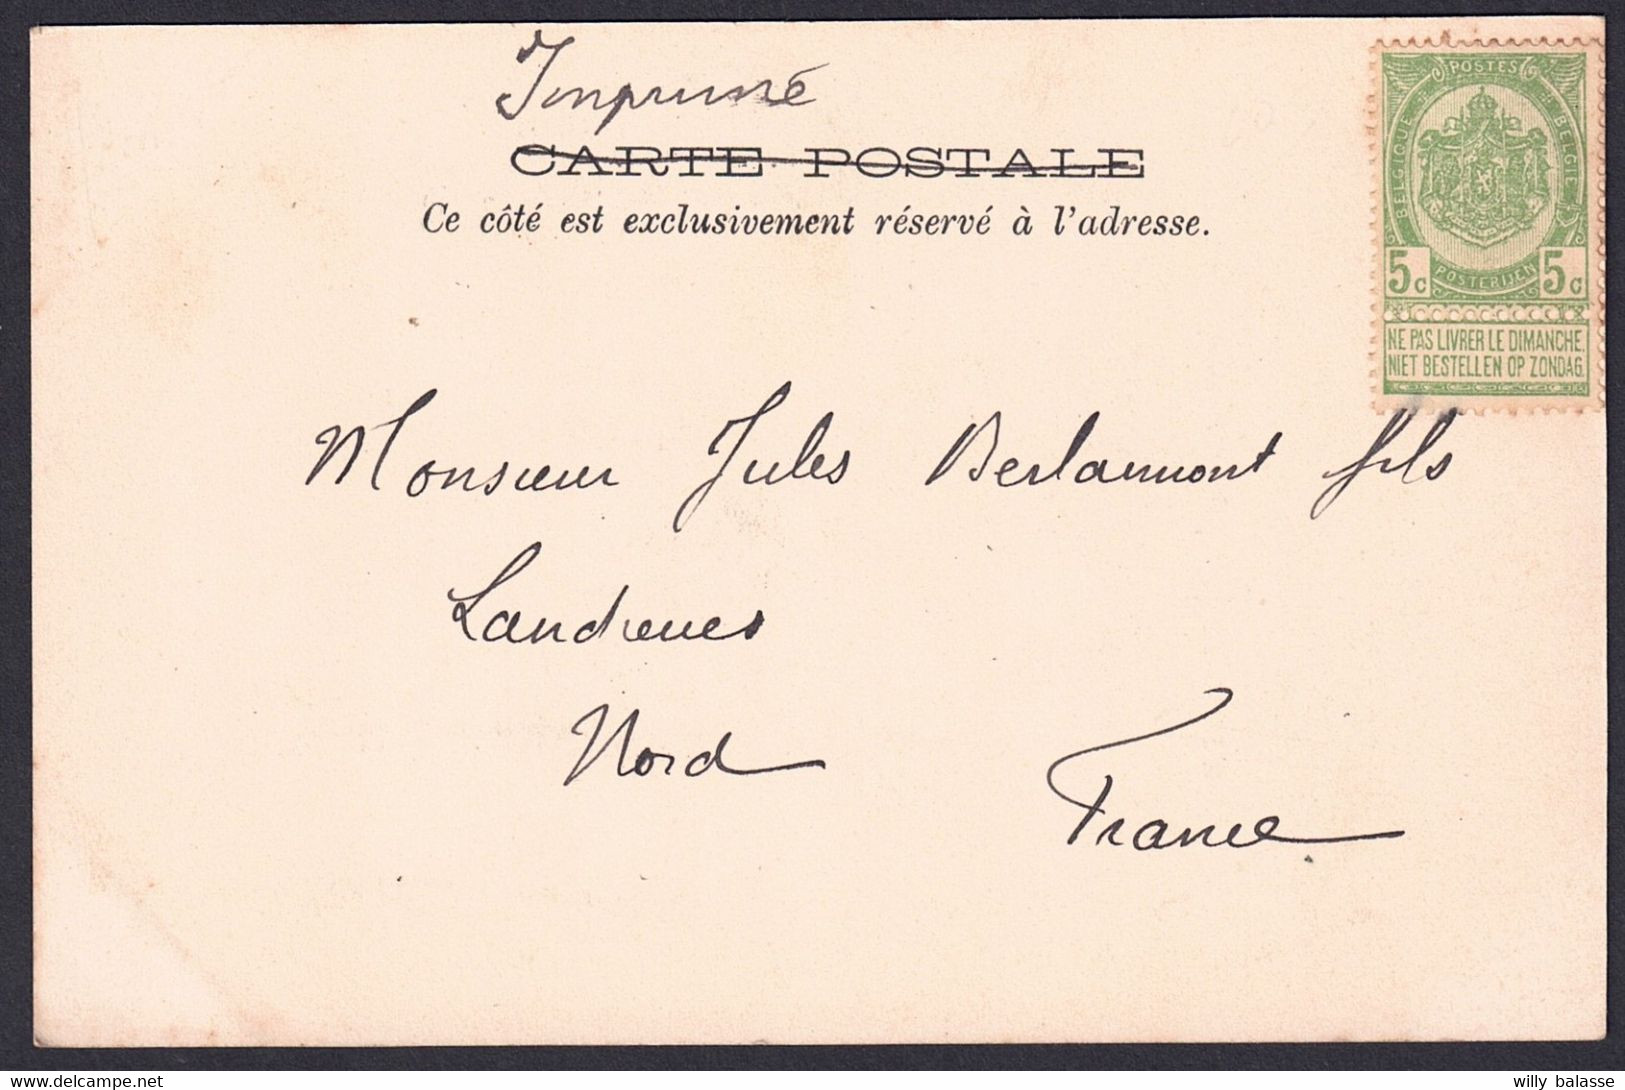 Imprimé
CARTE POSTALE
Ce côté est exclusivement réservé à l'adresse.
POSTES
BELGIQUE
BELGIE
5c
POSTERIJEN
5c
NE PAS LIVRER LE DIMANCHE.
NIET BESTELLEN OP ZONDAG.
Monsieur Jules Berlaimont fils
Landrecies
Nord
France
willy balasse